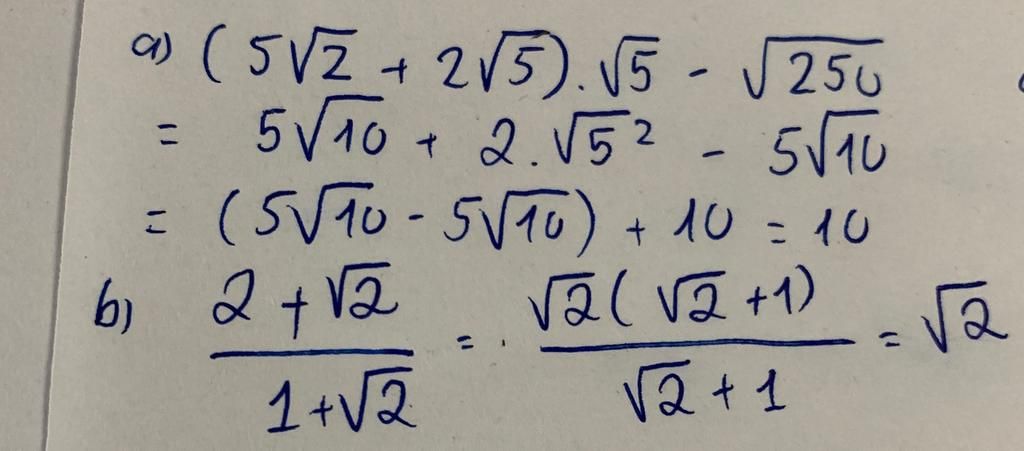 a) (5√2 + 2√5).√5 - √250
= 5√10 + 2.√5² - 5√10
= (5√10 - 5√10) + 10 = 10
b) (2 + √2)/(1 + √2) = (√2(√2 + 1))/(√2 + 1) = √2